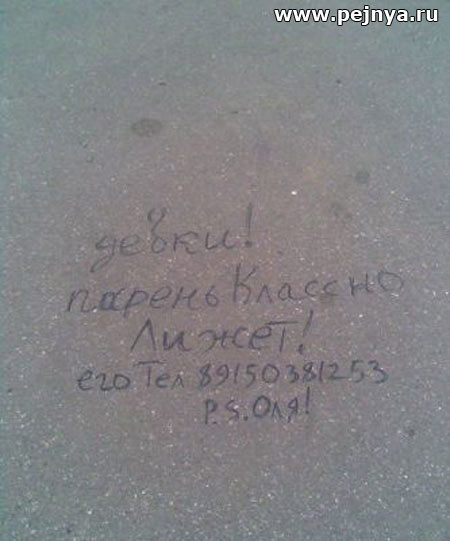 www.pejnya.ru
девки!
парень Классно
Лижет!
его Тел 89150381253
P.S. Оля!